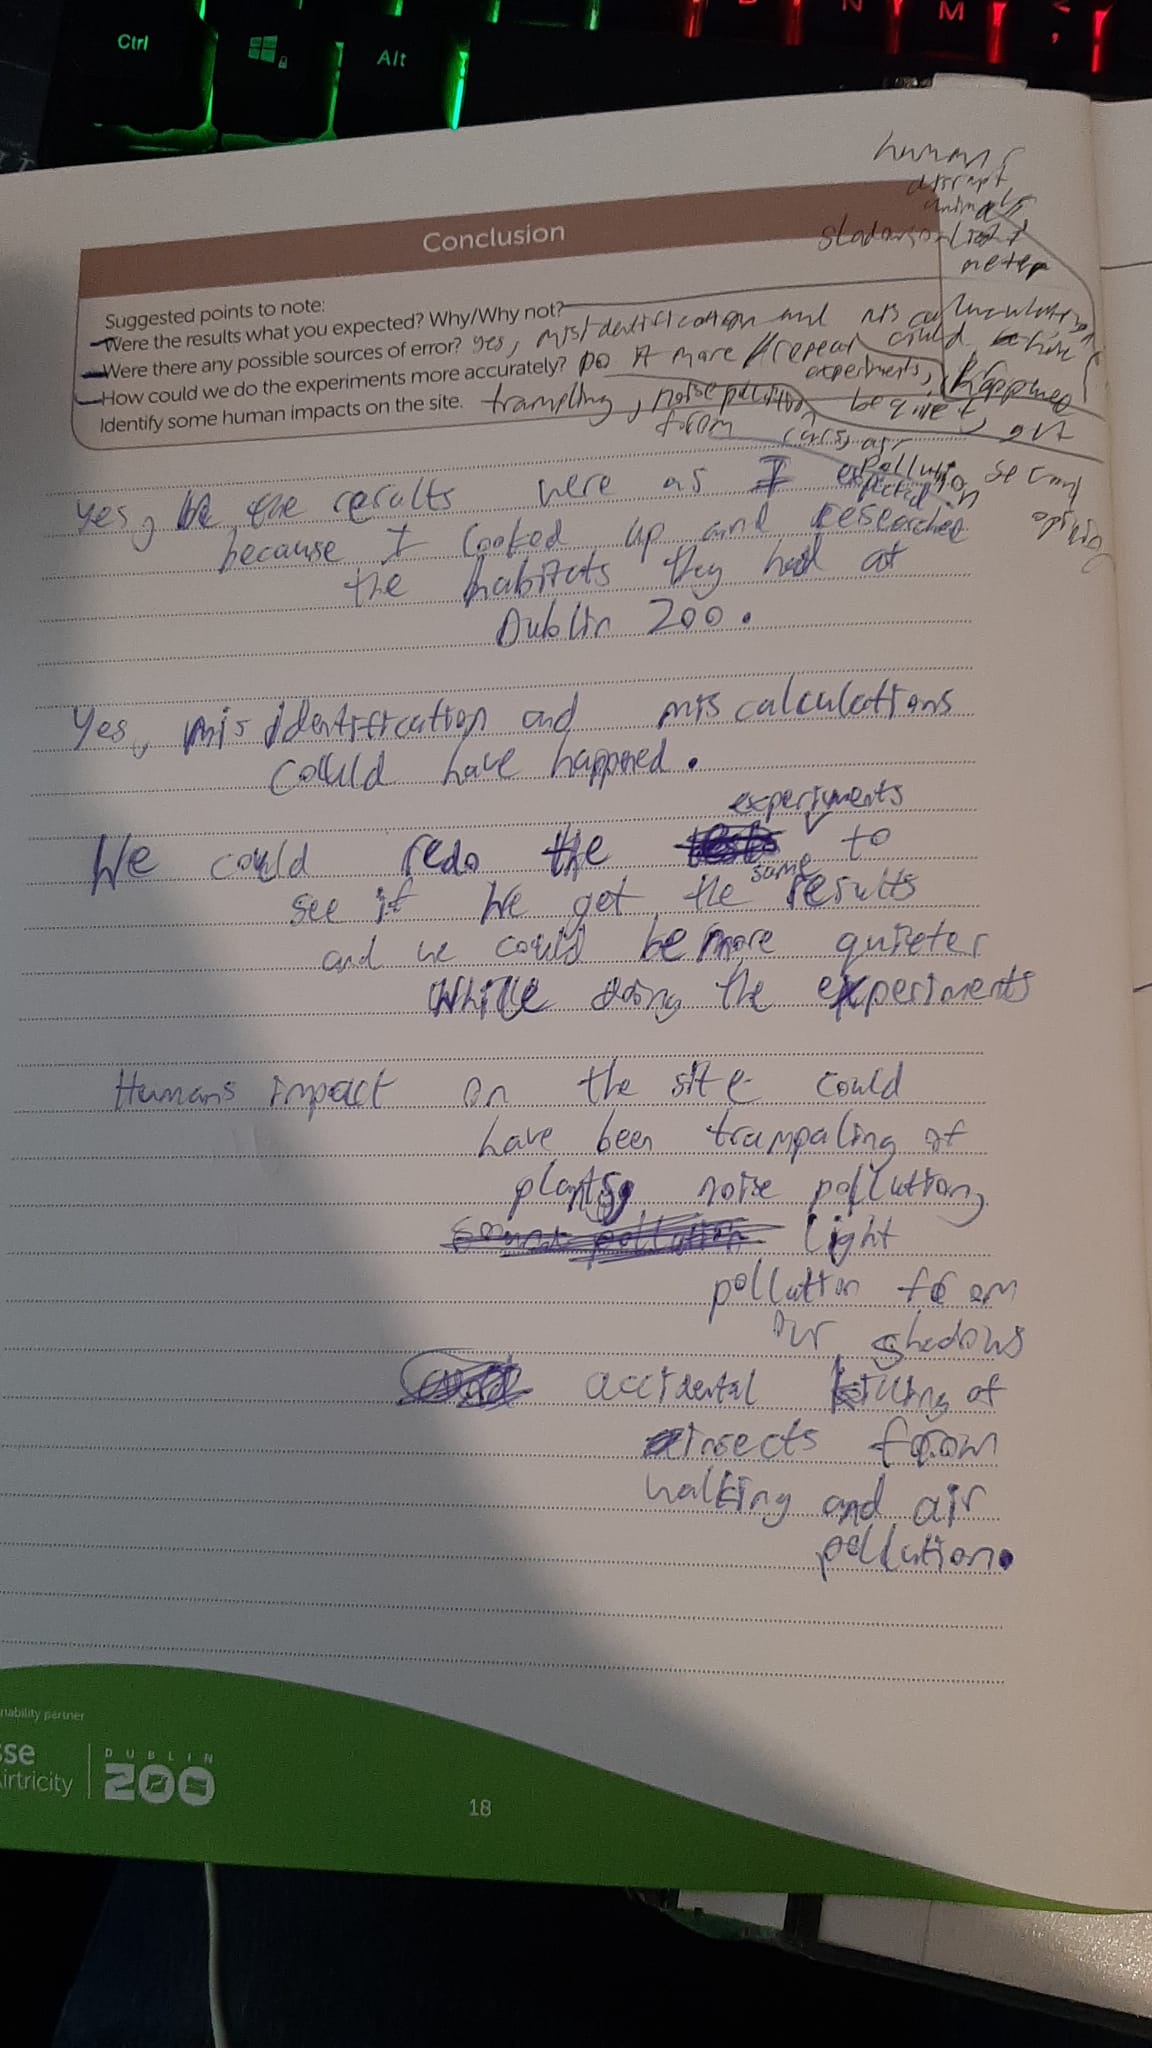 Ctrl
Alt
N
M
<
,
humans
disrupt
animals,
shadows-light
meter
Conclusion
Suggested points to note:
Were the results what you expected? Why/Why not?
Were there any possible sources of error? yes, misidentification and mis calculations
could have
happened
How could we do the experiments more accurately? Do it more / repeat
experiments,
be quiet, get
second
opinion
Identify some human impacts on the site. trampling, noise pollution
from cars, air
pollution
yes, the results were as I expected
because I looked up and researched
the habitats they had at
Dublin Zoo.
Yes, mis identification and mis calculations
could have happened.
experiments
We could redo the to
same
see if we get the results
and we could be more quieter
while doing the experiments
Humans impact on the site could
have been trampaling of
plants, noise pollution,
sound pollution light
pollution from
our shadows
accidental killing of
insects from
walking and air
pollution.
nability partner
sse
Airtricity
DUBLIN
ZOO
18